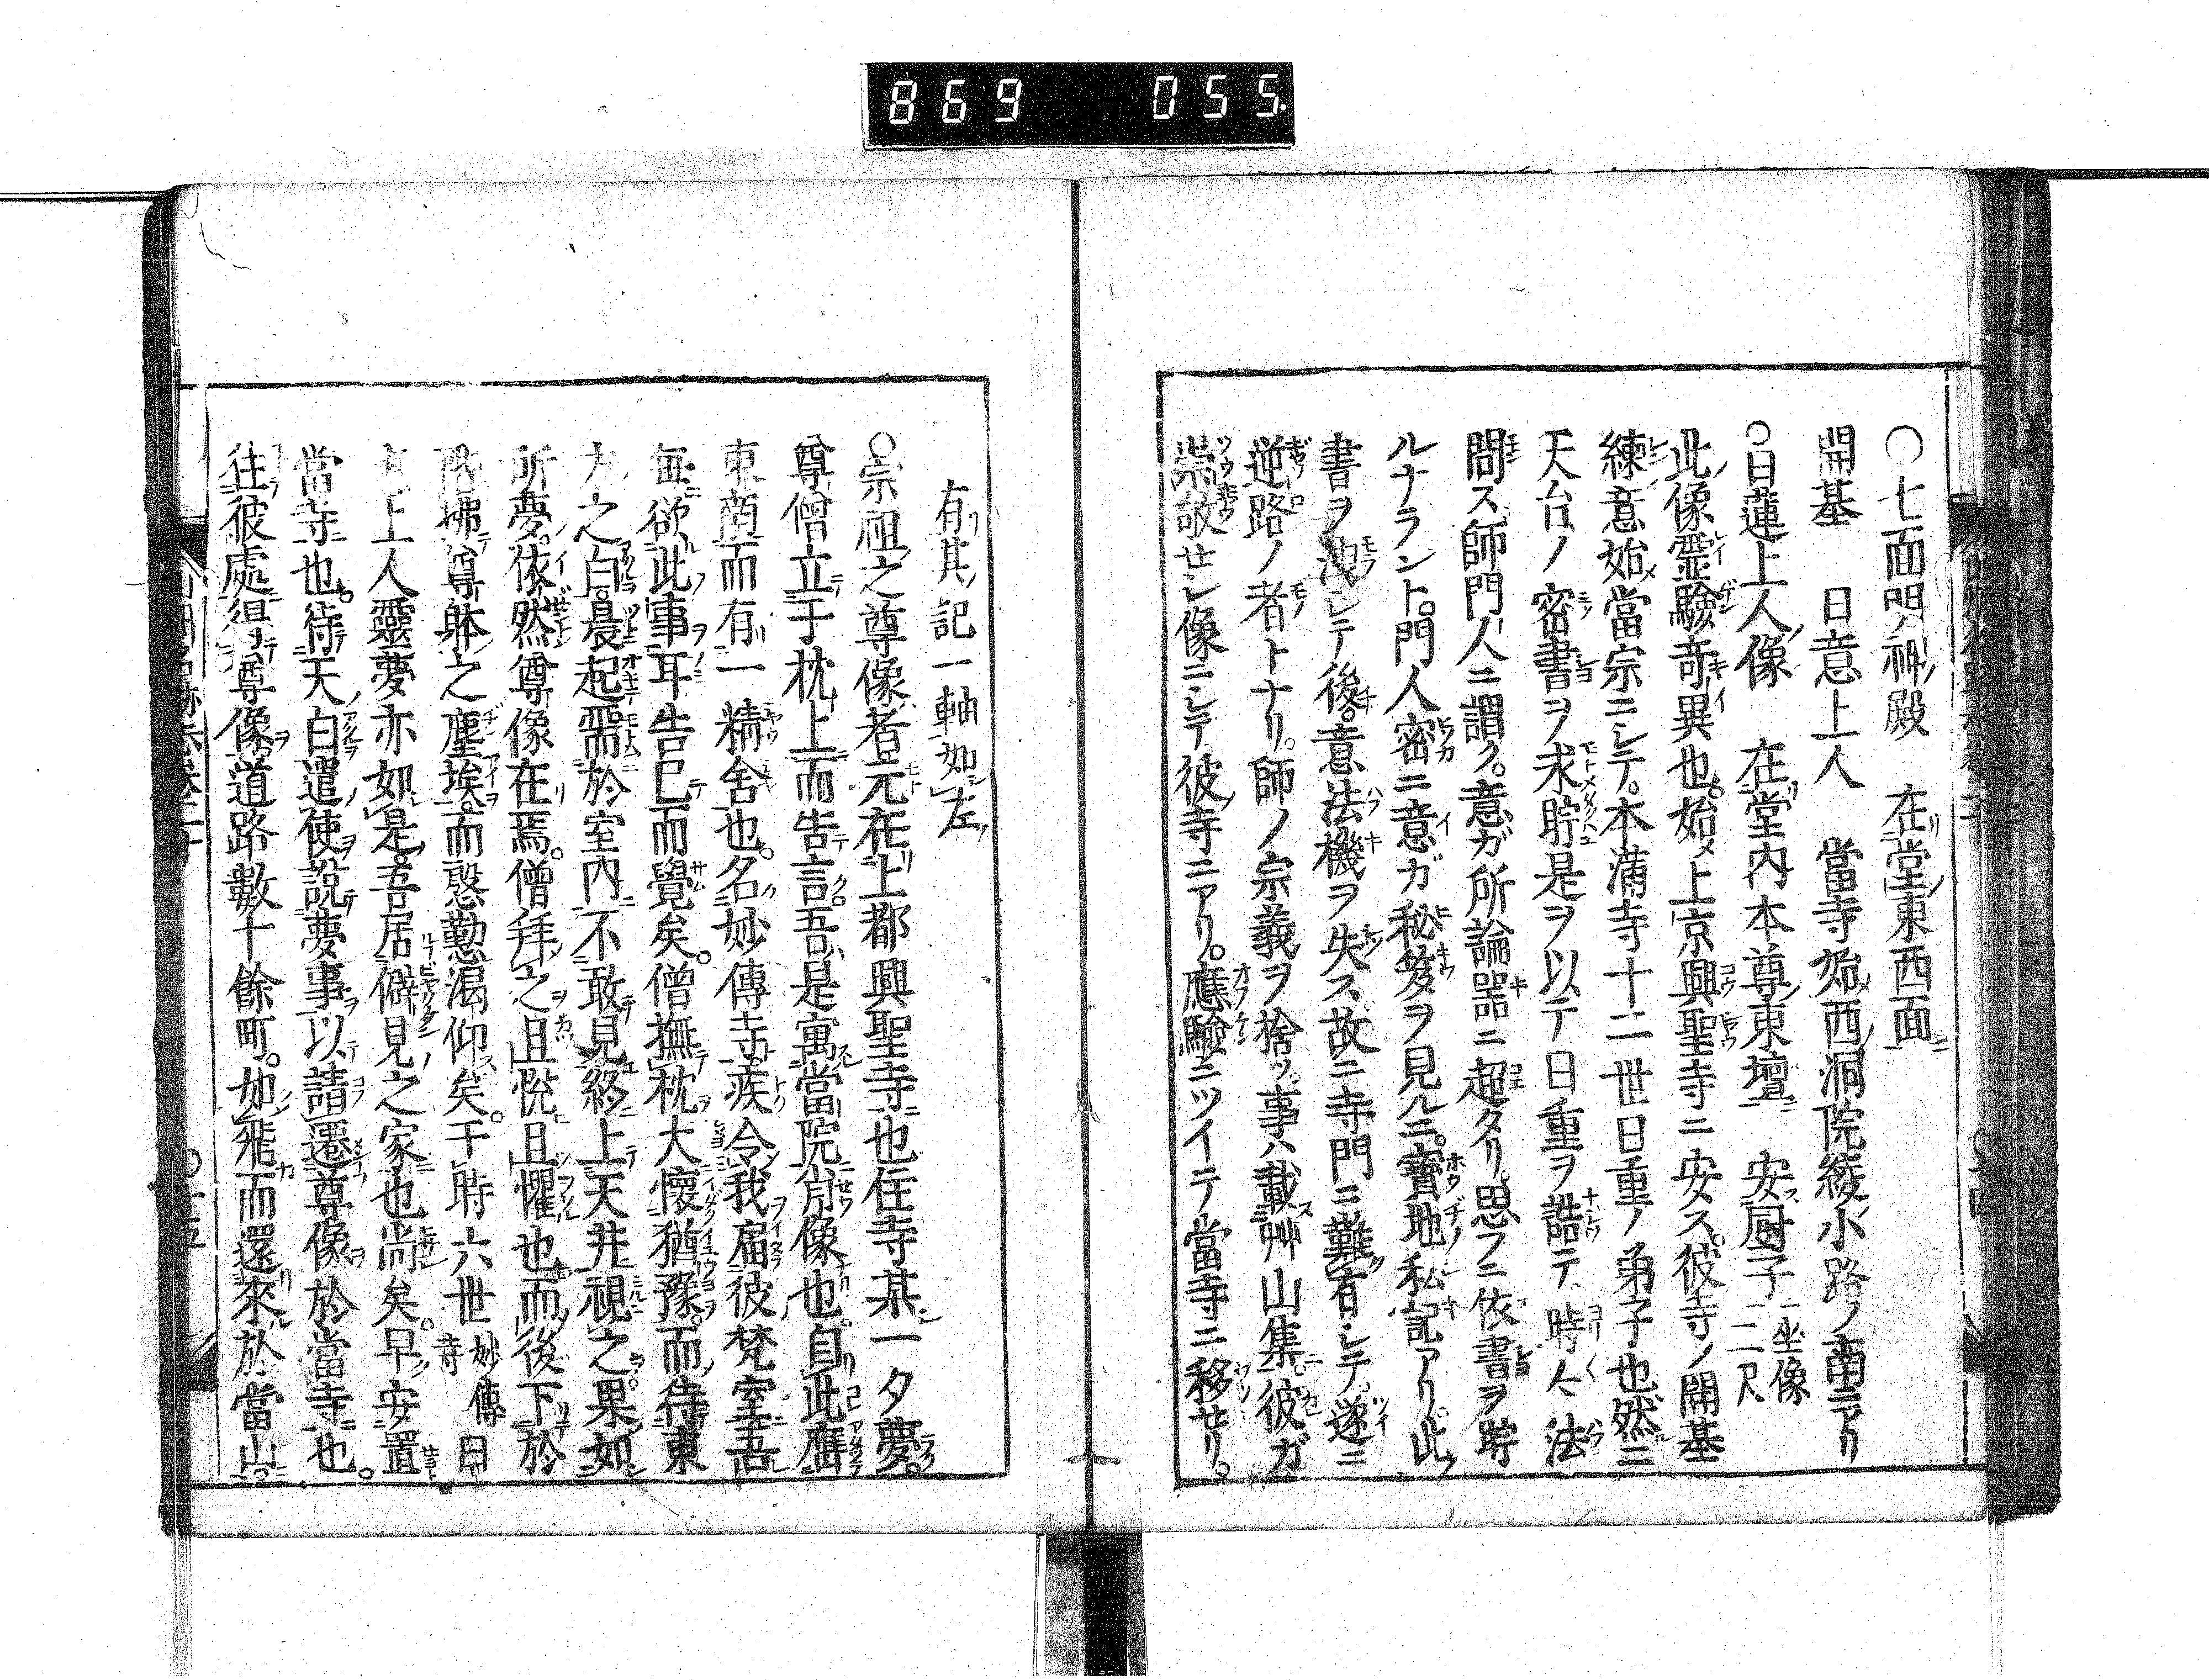 869 055
○七面明神殿 在堂東西面
開基 日意上人 當寺始西洞院綾小路ノ南ニアリ
○日蓮上人像 在堂內本尊東壇 安厨子 坐像二尺
此像霊驗奇異也始メ上京興聖寺ニ安ス彼寺ノ開基
練意始當宗ニシテ。本滿寺十二世日重ノ弟子也然ニ
天台ノ密書ヲ求貯是ヲ以テ日重ヲ誥テ時々法
問ス師門人ニ謂ク。意ガ所論器ニ超タリ。思フニ依書ヲ貯
ルナラント。門人密ニ意ガ秘笈ヲ見ルニ。寳地私記アリ此
書ヲ洩シテ後。意法機ヲ失ス故ニ寺門ニ難有シテ遂ニ
逆路ノ者トナリ。師ノ宗義ヲ捨ツ事ハ載艸山集彼ガ
崇敬セシ像ニシテ彼寺ニアリ。應驗ニツイテ當寺ニ移セリ。
有其記一軸如左
○宗祖之尊像者元在上都興聖寺也住寺某一夕夢。
尊僧立于枕上而告言吾是寓當院肖像也自此鷹
東南而有一精舍也。名妙傳寺疾令我届彼梵室吾
每欲此事耳告已而覺矣。僧撫枕大懷猶豫而待東
方之白。晨起需於室內不敢見終上天井視之果如
所夢。依然尊像在焉。僧拜之且悦且懼也而後下於
拂尊躰之塵埃而慇懃渴仰矣。于時六世妙傳寺日
上人靈夢亦如是吾居僻見之家也尚矣。早安置
當寺也。待天白遣使說夢事以請遷尊像於當寺也。
往彼處得尊像道路數十餘町。如飛而還來於當山。